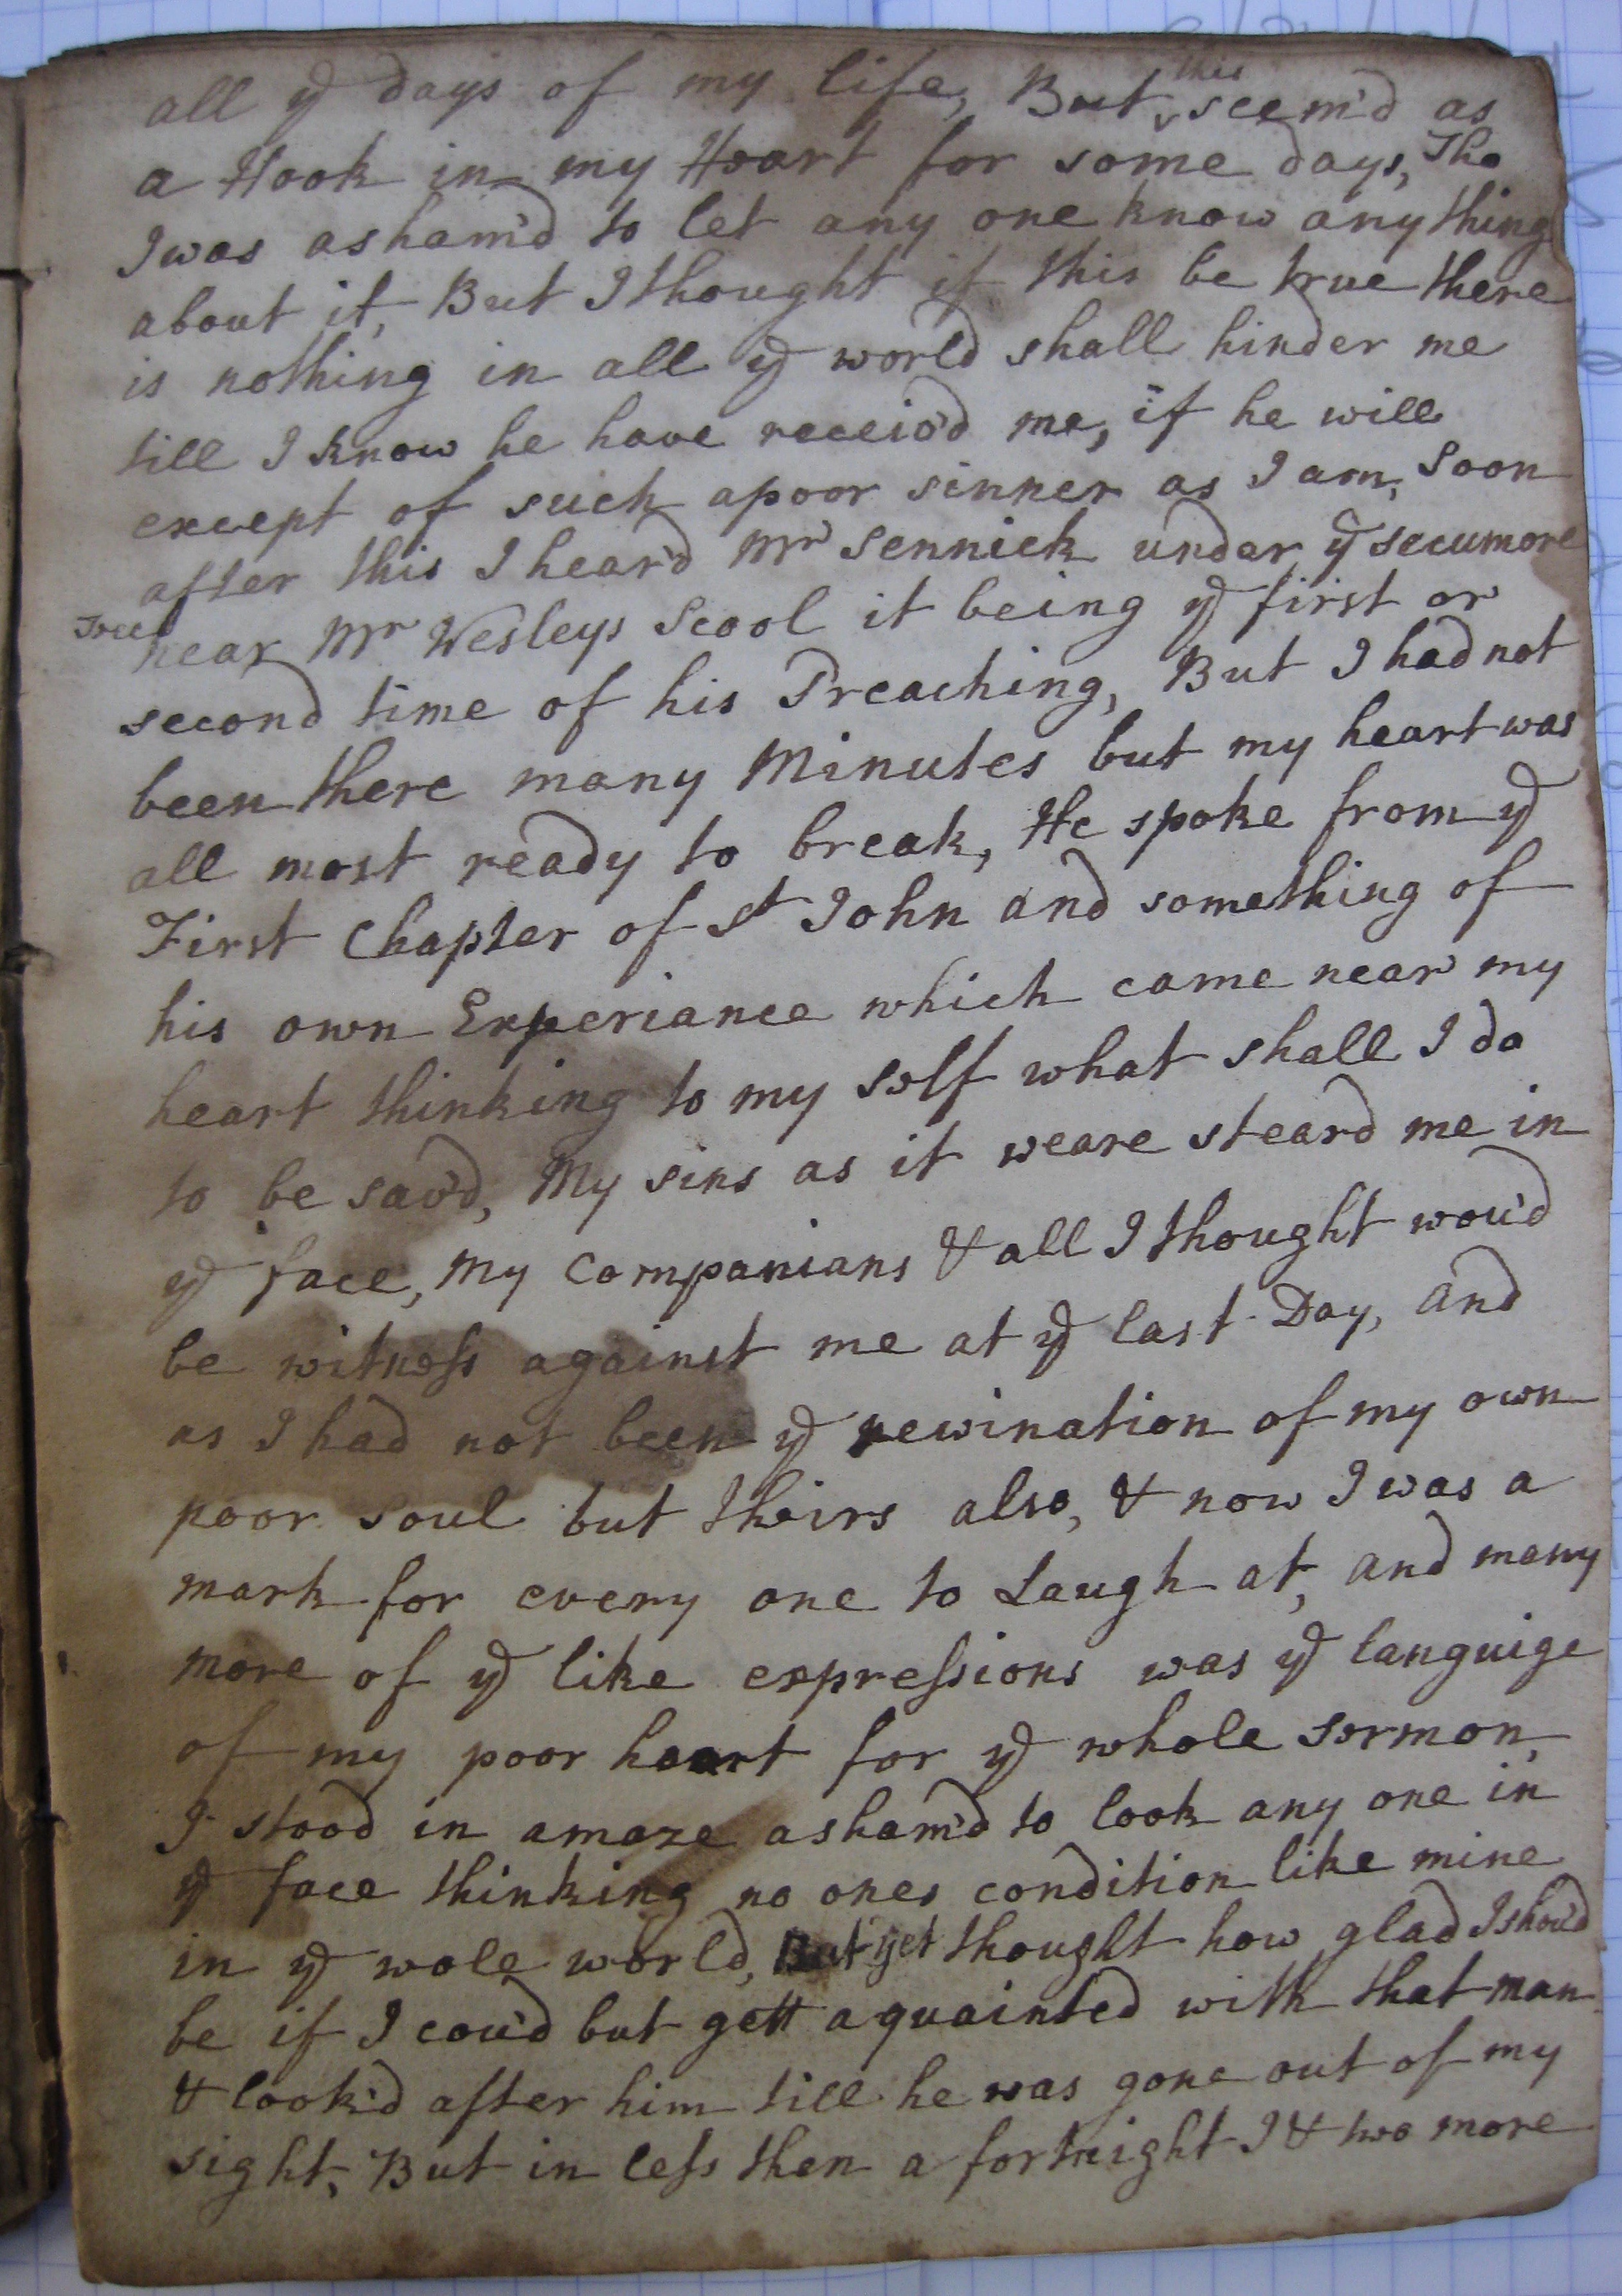 all ye days of my life, But this seem'd as
a Hook in my Heart for some days, Tho
I was asham'd to let any one know any thing
about it, But I thought if this be true there
is nothing in all ye world shall hinder me
till I know he have receiv'd me, if he will
except of such a poor sinner as I am, Soon
after this I heard Mr Sennick under ye secumore
Tree near Mr Wesleys Scool it being ye first or
second time of his Preaching, But I had not
been there many Minutes but my heart was
all most ready to break, He spoke from ye
First Chapter of St John and something of
his own Experiance which came near my
heart thinking to my self what shall I do
to be sav'd, My sins as it weare steard me in
ye face, My Companians & all I thought wou'd
be witness against me at ye last Day, and
as I had not been ye rewination of my own
poor soul but theirs also, & now I was a
mark for every one to Laugh at, and many
more of ye like expressions was ye languige
of my poor heart for ye whole sermon,
I stood in amaze asham'd to look any one in
ye face thinking no ones condition like mine
in ye wole world, But yet thought how glad I shou'd
be if I cou'd but gett aquainted with that man
& look'd after him till he was gone out of my
sight, But in less then a fortnight I & two more